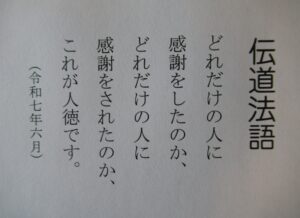 伝道法語
どれだけの人に
感謝をしたのか、
どれだけの人に
感謝をされたのか、
これが人徳です。
（令和七年六月）